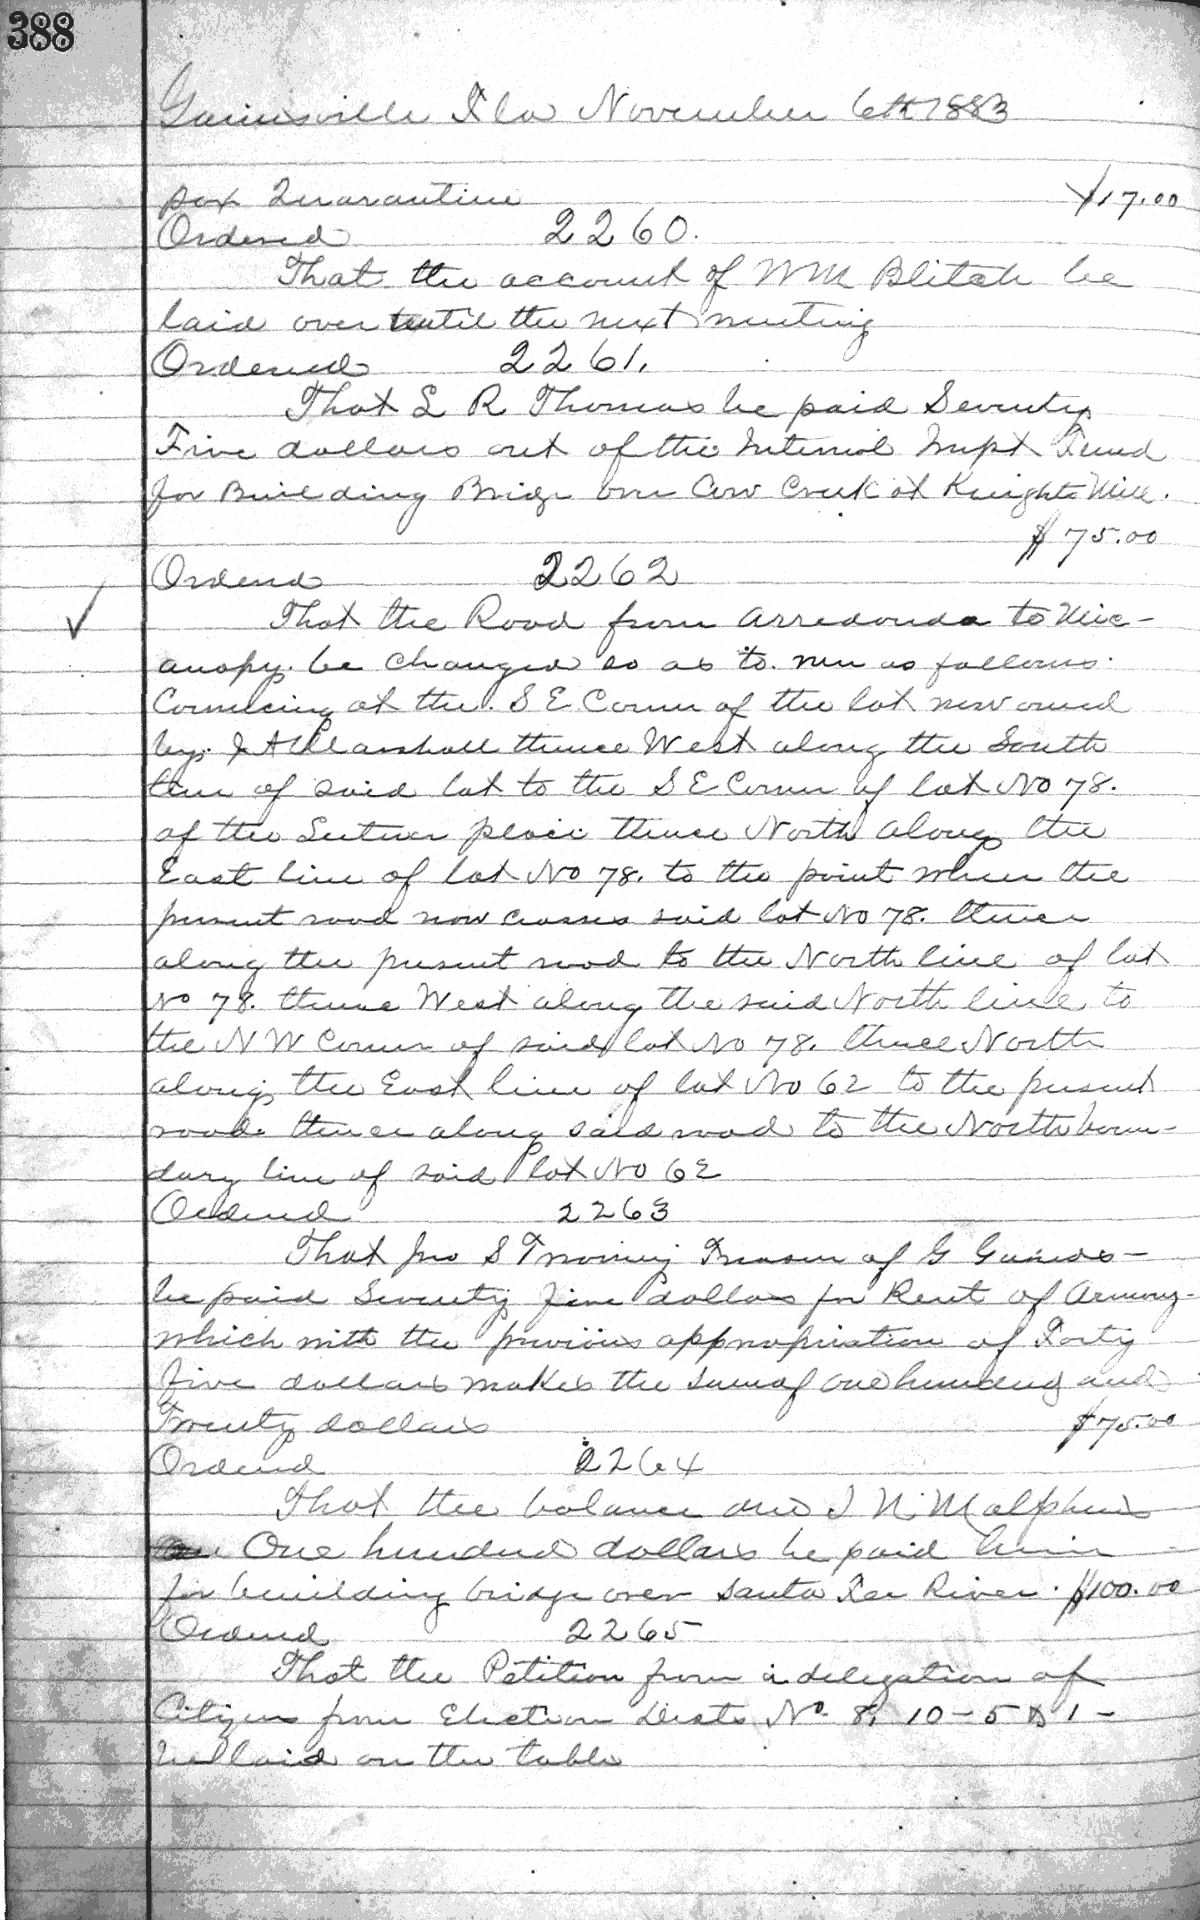 388
Gainesville Fla November 6th 1883
pox Quarantine $17.00
Ordered 2260.
That the account of Wm Blitch be
laid over until the next meeting
Ordered 2261.
That L R Thomas be paid Seventy
Five dollars out of the Internal Impt Fund
for Building Bridge over Cow Creek at Knights Mill.
$75.00
Ordered 2262
That the Road from Arredonda to Mic-
anopy. be changed so as to run as follows.
Comencing at the S E Corner of the lot now owned
by. J A Marshall thence West along the South
line of said lot to the S E Corner of lot No 78.
of the place thence North along the
East line of lot No 78. to the point where the
present road now crosses said lot No 78. thence
along the present road to the North line of lot
No 78. thence West along the said North line to
the N W Corner of said lot No 78. thence North
along the East line of lot No 62 to the present
road. thence along said road to the North boun-
dary line of said lot No 62
Ordered 2263
That Jno S Treasur of G Guards-
be paid Seventy five dollars for Rent of Armory-
which with the previous appropriation of Forty
five dollars makes the sum of one hundred and
Twenty dollars $75.00
Ordered 2264
That the balance due J N Malphurs
One hundred dollars be paid him
for building bridge over Santa Fee River. $100.00
Ordered 2265
That the Petition from a delegation of
Citizens from Election Dists No. 8, 10-5 & 1-
be laid on the table